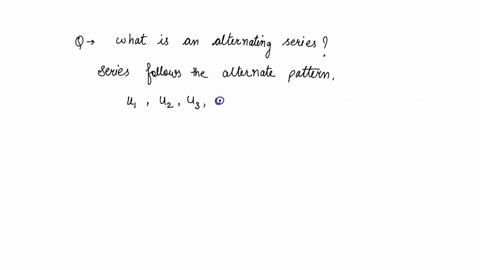 Q → what is an alternating series?
series follows the alternate pattern.
u₁, u₂, u₃,